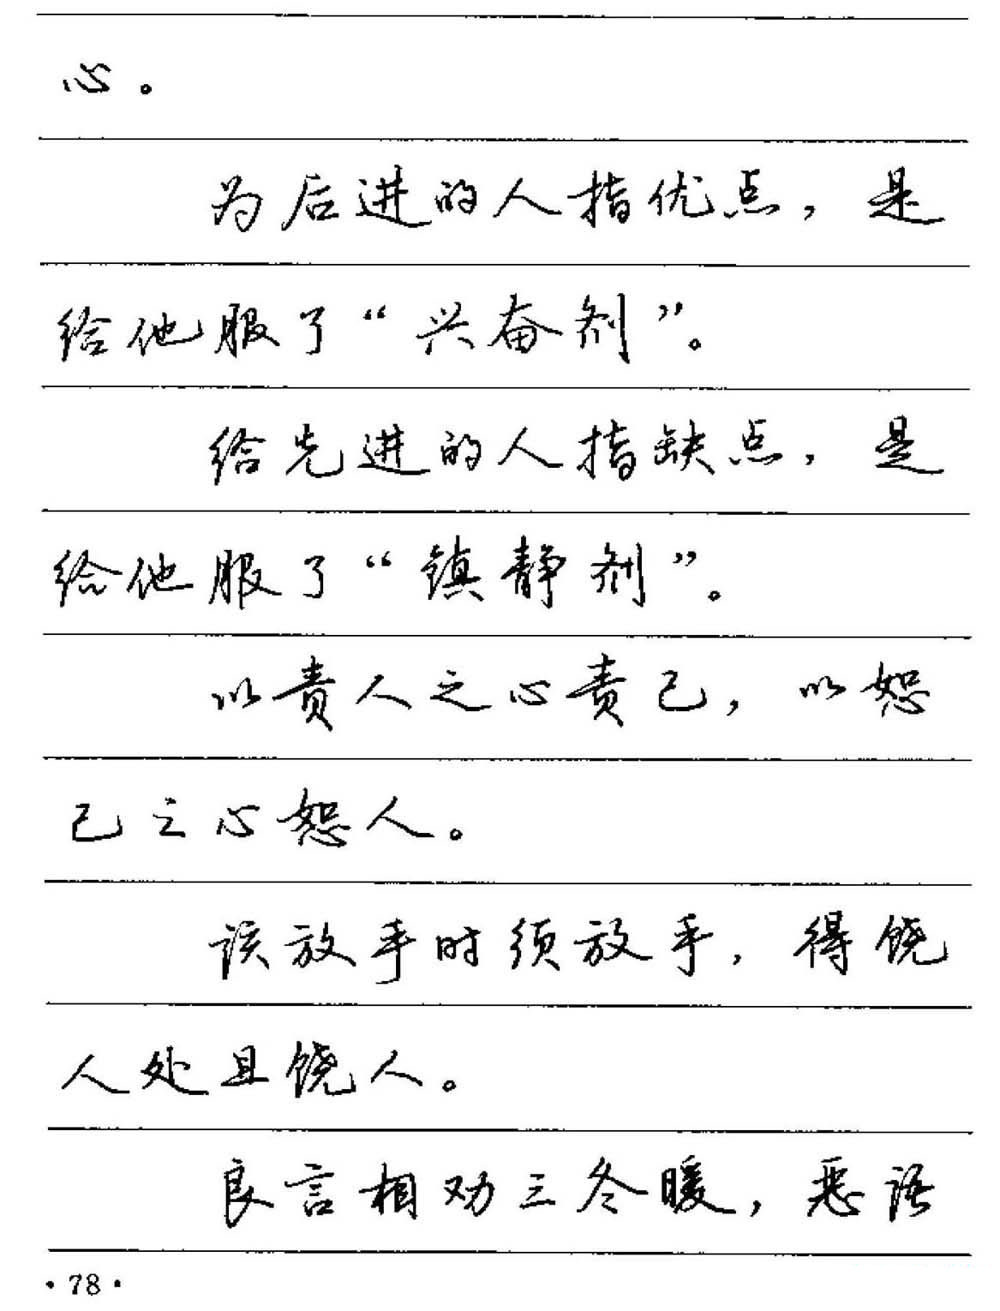 心。
为后进的人指优点，是
给他服了“兴奋剂”。
给先进的人指缺点，是
给他服了“镇静剂”。
以责人之心责己，以恕
己之心恕人。
该放手时须放手，得饶
人处且饶人。
良言相劝三冬暖，恶语
·78·